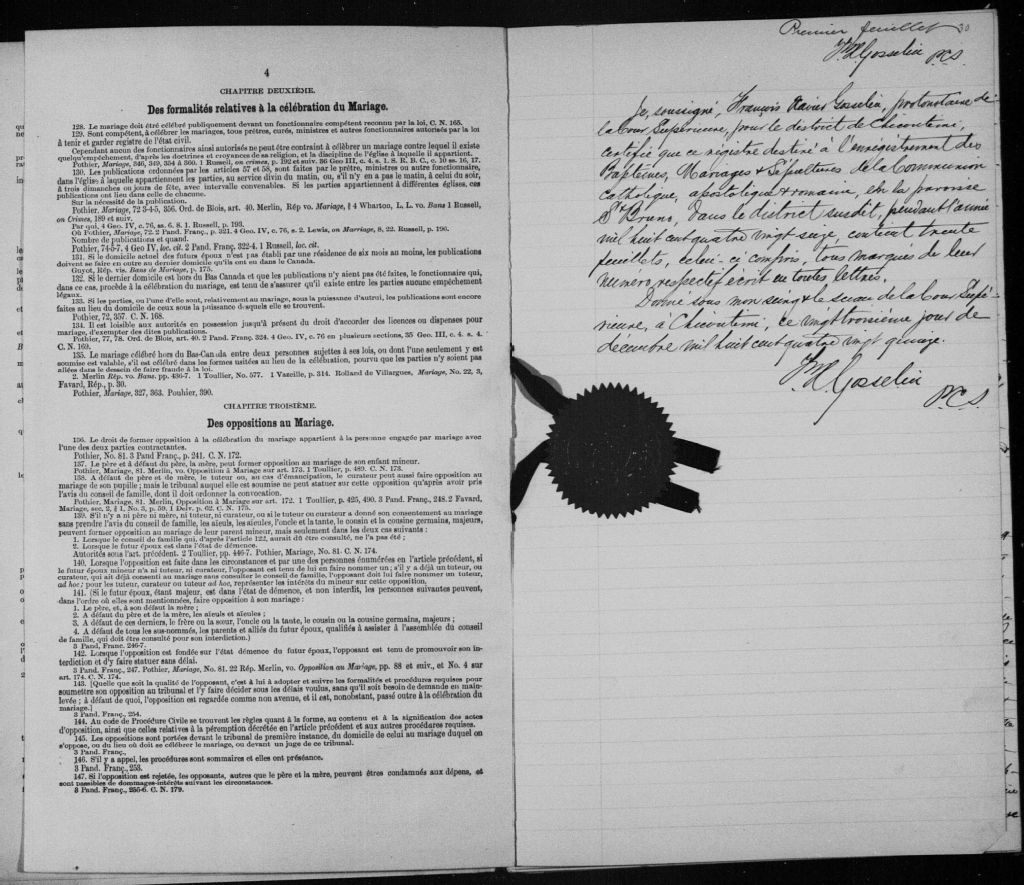 4
CHAPITRE DEUXIÈME.
Des formalités relatives à la célébration du Mariage.
128. Le mariage doit être célébré publiquement devant un fonctionnaire compétent reconnu par la loi, C. N. 165.
129. Sont compétent, à célébrer les mariages, tous prêtres, curés, ministres et autres fonctionnaires autorisés par la loi
à tenir et garder registre de l'état civil.
Cependant aucun des fonctionnaires ainsi autorisés ne peut être contraint à célébrer un mariage contre lequel il existe
quelqu'empêchement, d'après les doctrines et croyances de sa religion, et la discipline de l'église à laquelle il appartient.
Pothier, Mariage, 346, 349, 354 à 360. 1 Russell, on crimes, p. 192 et suiv. 36 Geo III, c. 4, s. 1. S. R. B. C., c. 10 ss 16, 17.
130. Les publications ordonnées par les articles 57 et 58, sont faites par le prêtre, ministre ou autre fonctionnaire,
dans l'église à laquelle appartiennent les parties, au service divin du matin, ou, s'il n'y en a pas le matin, à celui du soir,
à trois dimanches ou jours de fête, avec intervalle convenables. Si les parties appartiennent à différentes églises, ces
publications ont lieu dans celle de chacune.
Sur la nécessité de la publication.
Pothier, Mariage, 72 3-4-5, 356. Ord. de Blois, art. 40. Merlin, Rép vo. Mariage, § 4 Wharton, L, L. vo. Bans 1 Russell,
on Crimes, 189 et suiv.
Par qui, 4 Geo IV, c. 76, ss. 6. 8. 1. Russell, p. 193.
Où Pothier, Mariage, 72. 2 Pand. Franç., p. 331. 4 Geo IV, c. 76, s. 2. Lewis, on Marriage, 8, 22. Russell, p. 196.
Nombre de publications et quand.
Pothier, 74-5-7. 4 Geo IV, loc. cit. 2 Pand. Franç. 322-4. 1 Russell, loc. cit.
131. Si le domicile actuel des futurs époux n'est pas établi par une résidence de six mois au moins, les publications
doivent se faire en outre au dernier domicile qu'ils ont eu dans le Canada.
Guyot, Rép. vis. Bans de Mariage, p. 175.
132. Si le dernier domicile est hors du Bas Canada et que les publications n'y aient pas été faites, le fonctionnaire qui,
dans ce cas, procède à la célébration du mariage, est tenu de s'assurer qu'il existe entre les parties aucune empêchement
légaux.
133. Si les parties, ou l'une d'elle sont, relativement au mariage, sous la puissance d'autrui, les publications sont encore
faites au lieu du domicile de ceux sous la puissance desquels elle se trouvent.
Pothier, 72, 357. C. N. 168.
134. Il est loisible aux autorités en possession jusqu'à présent du droit d'accorder des licences ou dispenses pour
mariage, d'exempter des dites publications.
Pothier, 77, 78. Ord. de Blois, art. 40. 2 Pand. Franç. 324. 4 Geo. IV, c. 76 en plusieurs sections, 35 Geo. III, c. 4. s. 4.
C. N. 169.
135. Le mariage célébré hors du Bas-Canada entre deux personnes sujettes à ses lois, ou dont l'une seulement y est
soumise est valable, s'il est célébré dans les formes usitées au lieu de la célébration, pourvu que les parties n'y soient pas
allées dans le dessein de faire fraude à la loi.
2. Merlin Rép vo. Bans. pp. 436-7. 1 Toullier, No. 577. 1 Vazeille, p. 314. Rolland de Villargues, Mariage, No. 22, 3,
Favard, Rép., p. 30.
Pothier, Mariage, 327, 363. Pouhier, 390.
CHAPITRE TROISIÈME.
Des oppositions au Mariage.
136. Le droit de former opposition à la célébration du mariage appartient à la personne engagée par mariage avec
l'une des deux parties contractantes.
Pothier, No. 81. 3 Pand Franç., p. 241. C. N. 172.
137. Le père et à défaut du père, la mère, peut former opposition au mariage de son enfant mineur.
Pothier, Mariage, 81. Merlin, vo. Opposition à Mariage sur art. 173. 1 Toullier, p. 489. C. N. 173.
138. A défaut de père et de mère, le tuteur ou, au cas d'émancipation, le curateur peut aussi faire opposition au
mariage de son pupille; mais le tribunal auquel elle est soumise ne peut statuer sur cette opposition qu'après avoir pris
l'avis du conseil de famille, dont il doit ordonner la convocation.
Pothier, Mariage, 81. Merlin, Opposition à Mariage sur art. 172. 1 Toullier, p. 425, 490. 3 Pand. Franç., 248. 2 Favard,
Mariage, sec. 2, § 1, No. 3, p. 59. 1 Delv. p. 62. C. N. 175.
139. S'il n'y a ni père ni mère, ni tuteur, ni curateur, ou si le tuteur ou curateur a donné son consentement au mariage
sans prendre l'avis du conseil de famille, les aïeuls, les aïeules, l'oncle et la tante, le cousin et la cousine germains, majeurs,
peuvent former opposition au mariage de leur parent mineur, mais seulement dans les deux cas suivants :
1. Lorsque le conseil de famille qui, d'après l'article 122, aurait dû être consulté, ne l'a pas été ;
2. Lorsque le futur époux est dans l'état de démence.
Autorités sous l'art. précédent. 2 Toullier, pp. 446-7. Pothier, Mariage, No. 81. C. N. 174.
140. Lorsque l'opposition est faite dans les circonstances et par une des personnes énumérées en l'article précédent, si
le futur époux mineur n'a ni tuteur, ni curateur, l'opposant est tenu de lui en faire nommer un ; s'il y a déjà un tuteur, ou
curateur, qui ait déjà consenti au mariage sans consulter le conseil de famille, l'opposant doit lui faire nommer un tuteur,
ad hoc ; pour les tuteur, curateur ou tuteur ad hoc, représenter les intérêts du mineur sur cette opposition.
141. [Si le futur époux, étant majeur, est dans l'état de démence, et non interdit, les personnes suivantes peuvent,
dans l'ordre où elles sont mentionnées, faire opposition à son mariage :
1. Le père, et, à son défaut la mère ;
2. A défaut du père et de la mère, les aïeuls et aïeules ;
3. A défaut de ces derniers, le frère ou la sœur, l'oncle ou la tante, le cousin ou la cousine germains, majeurs ;
4. A défaut de tous les sus-nommés, les parents et alliés du futur époux, qualifiés à assister à l'assemblée du conseil
de famille, qui doit être consulté pour son interdiction.]
3 Pand. Franc. 246-7.
142. Lorsque l'opposition est fondée sur l'état démence du futur époux, l'opposant est tenu de promouvoir son in-
terdiction et d'y faire statuer sans délai.
3 Pand. Franç., 247. Pothier, Mariage, No. 81. 22 Rép. Merlin, vo. Opposition au Mariage, pp. 88 et suiv., et No. 4 sur
art. 174. C. N. 174.
143. [Quelque soit la qualité de l'opposant, c'est à lui à adopter et suivre les formalités et procédures requises pour
soumettre son opposition au tribunal et l'y faire décider sous les délais voulus, sans qu'il soit besoin de demande en main-
levée ; à défaut de quoi, l'opposition est regardée comme non avenue, et il est, nonobstant, passé outre à la célébration du
mariage.]
3 Pand. Franç., 254.
144. Au code de Procédure Civile se trouvent les règles quant à la forme, au contenu et à la signification des actes
d'opposition, ainsi que celles relatives à la péremption décrétée en l'article précédent et aux autres procédures requises.
145. Les oppositions sont portées devant le tribunal de première instance, du domicile de celui au mariage duquel on
s'oppose, ou du lieu où doit se célébrer le mariage, ou devant un juge de ce tribunal.
3 Pand. Franç.,
146. S'il y a appel, les procédures sont sommaires et elles ont préséance.
3 Pand. Franç., 253.
147. Si l'opposition est rejetée, les opposants, autres que le père et la mère, peuvent êtres condamnés aux dépens, et
sont passibles de dommages-intérêts suivant les circonstances.
3 Pand. Franç., 255-6. C. N. 179.
Premier feuillet 30
F.X. Gosselin P.C.S.
Je, soussigné, François Xavier Gosselin, protonotaire de
la Cour Supérieure, pour le district de Chicoutimi,
certifie que ce régistre destiné à l'enregistrement des
Baptêmes, Mariages & Sépultures de la Communion
Catholique, apostolique & romaine, en la paroisse
St. Bruno, dans le district susdit, pendant l'année
mil huit cent quatre vingt seize, contient trente
feuillets, celui-ci compris, tous marqués de leur
numéro respectif écrit en toutes lettres.
Donné sous mon seing & le sceau de la Cour Supé-
rieure, à Chicoutimi, ce vingt troisième jour de
decembre mil huit cent quatre vingt quinze.
F.X. Gosselin
P.C.S.